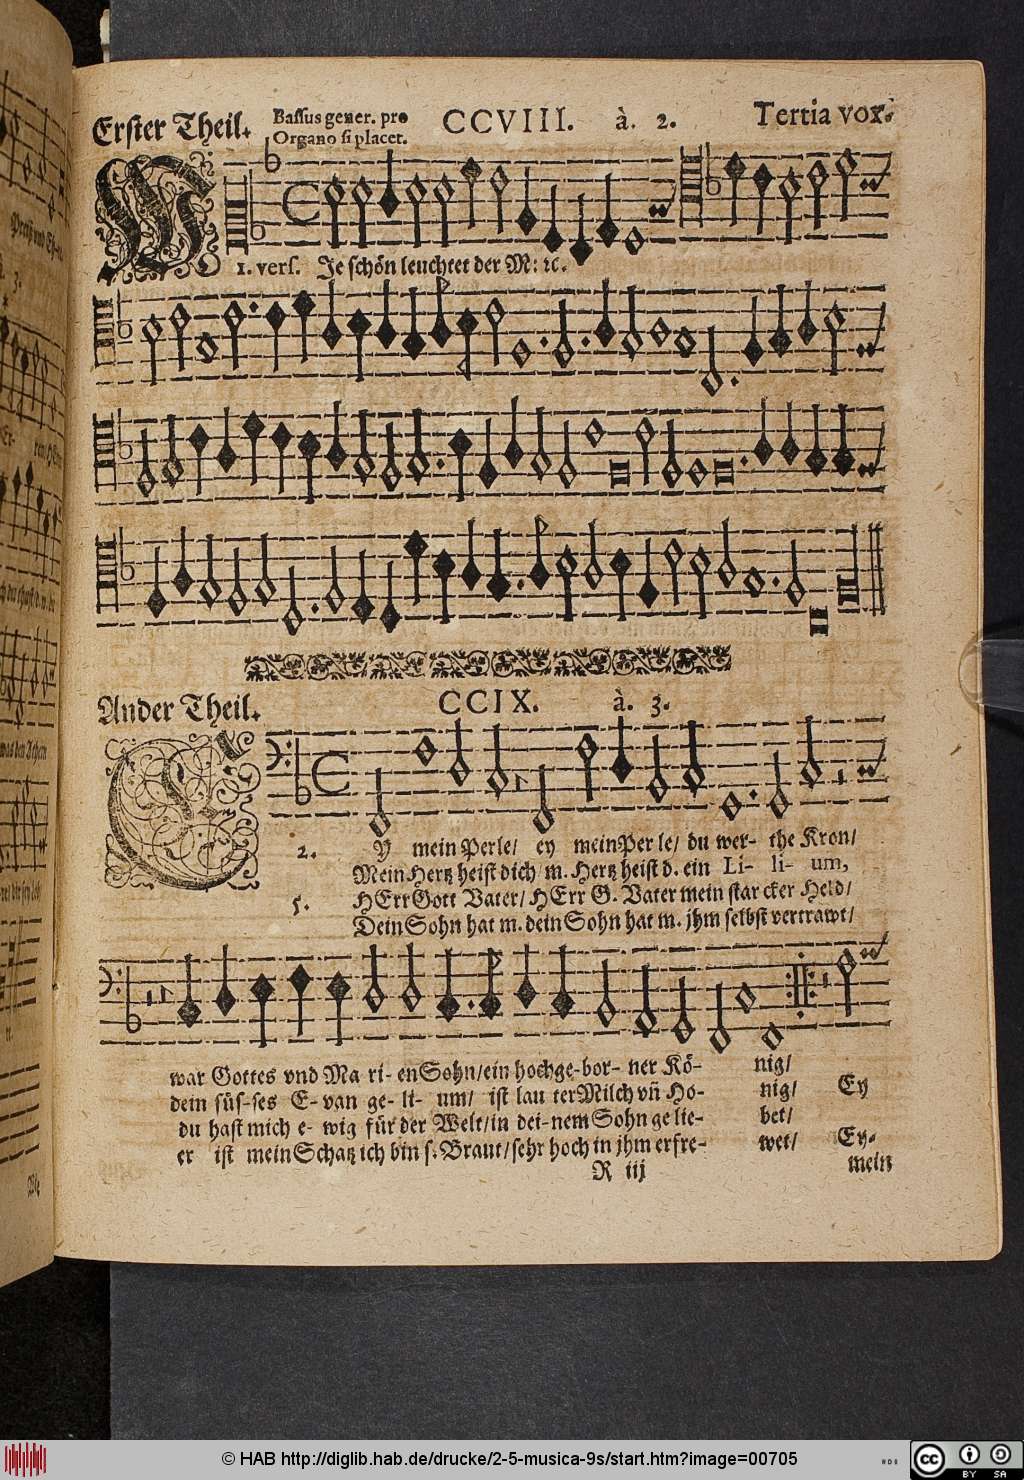 Erster Theil.
Bassus gener. pro
Organo si placet.
CCVIII. à. 2.
Tertia vox.
W
1. vers. Je schön leuchtet der M: ꝛc.
Ander Theil.
CCIX. à. 3.
E
2. Y mein Perle/ ey mein Perle/ du wer- the Kron/
Mein Hertz heist dich/ m. Hertz heist d. ein Li- li- um,
5. HErr Gott Vater/ HErr G. Vater mein star cker Held/
Dein Sohn hat m. dein Sohn hat m. jhm selbst vertrawt/
war Gottes vnd Ma ri- en Sohn/ ein hochge-bor- ner Kö- nig/
dein süs-ses E- van ge- li- um/ ist lau ter Milch vñ Ho- nig/ Ey
du hast mich e- wig für der Welt/ in dei-nem Sohn ge lie- bet/
er ist mein Schatz ich bin s. Braut/ sehr hoch in jhm erfre- wet/ Ey-
R iij mein
© HAB http://diglib.hab.de/drucke/2-5-musica-9s/start.htm?image=00705
cc BY SA